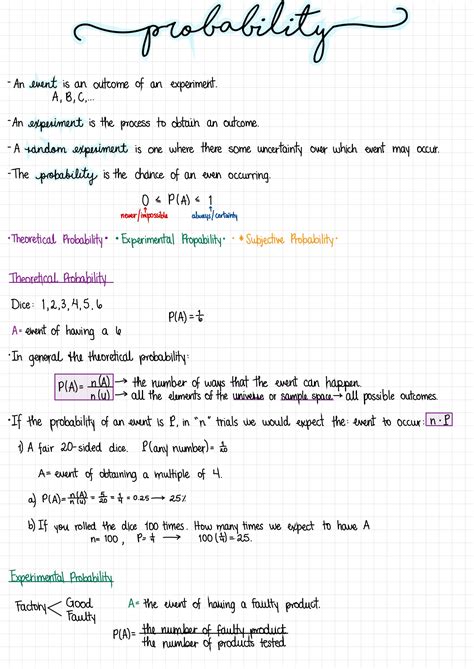 probability
- An event is an outcome of an experiment.
A, B, C,...
- An experiment is the process to obtain an outcome.
- A random experiment is one where there some uncertainty over which event may occur.
- The probability is the chance of an even occurring.
0 ≤ P(A) ≤ 1
never/impossible always/certainty
• Theoretical Probability • • Experimental Propability • • Subjective Probability •
Theoretical Probability
Dice: 1,2,3,4,5,6
P(A)= 1/6
A= event of having a 6
• In general the theoretical probability:
P(A)= n(A)/n(U) → the number of ways that the event can happen.
→ all the elements of the universe or sample space → all possible outcomes.
• If the probability of an event is P, in "n" trials we would expect the event to occur: n · P
1) A fair 20-sided dice. P(any number)= 1/20
A= event of obtaining a multiple of 4.
a) P(A)= n(A)/n(U) = 5/20 = 1/4 = 0.25 → 25%
b) If you rolled the dice 100 times. How many times we expect to have A
n= 100 , P= 1/4 → 100 (1/4) = 25.
Experimental Probability
Factory < Good
Faulty
A= the event of having a faulty product.
P(A)= the number of faulty product
the number of products tested